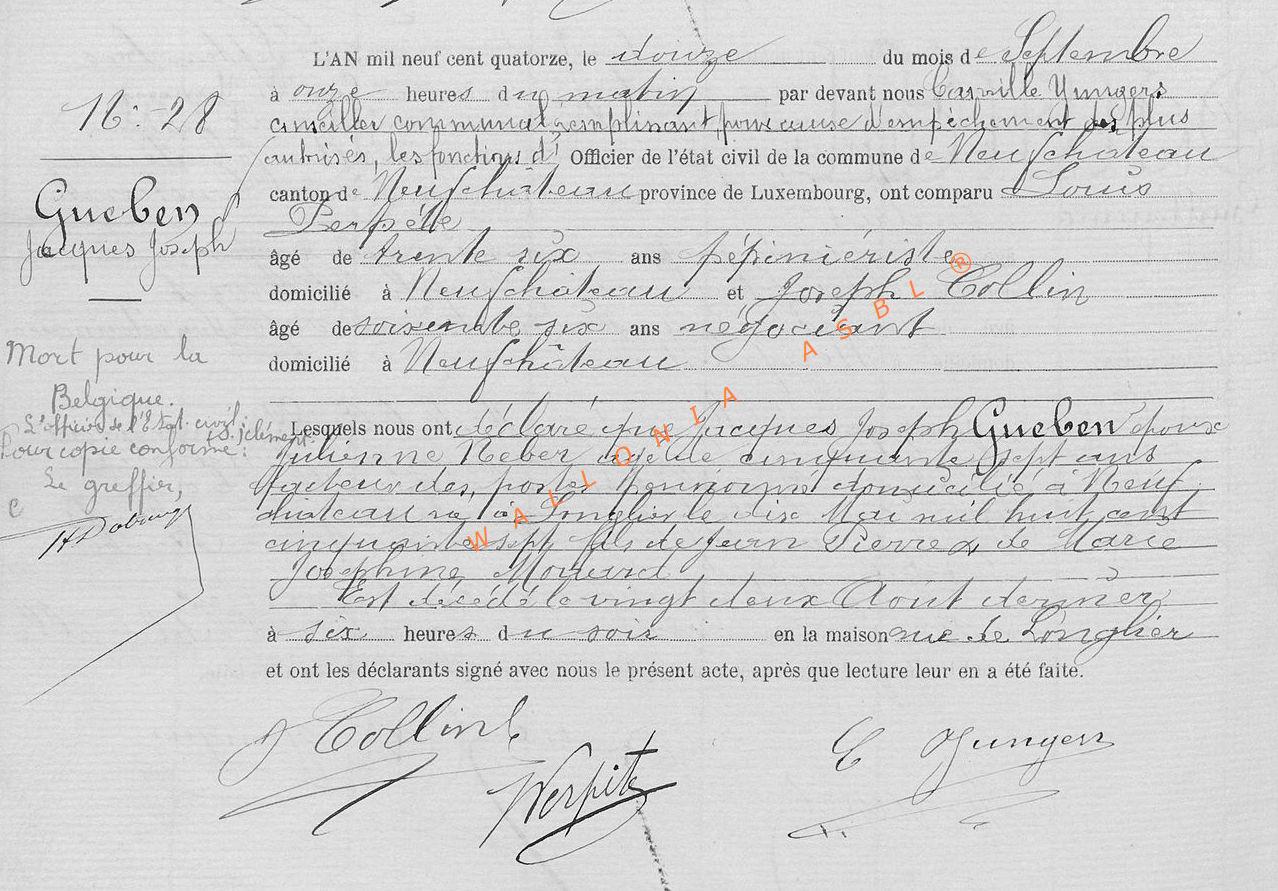 L'AN mil neuf cent quatorze, le douze du mois de Septembre
à onze heures du matin par devant nous Camille Yungers
conseiller communal remplissant, pour cause d'empêchement des plus
autorisés, les fonctions d' Officier de l'état civil de la commune de Neufchâteau
canton de Neufchâteau province de Luxembourg, ont comparu Louis
Perpète
âgé de trente six ans pépiniériste
domicilié à Neufchâteau et Joseph Collin
âgé de soixante six ans négociant
domicilié à Neufchâteau
Lesquels nous ont déclaré que Jacques Joseph Gueben époux
Julienne Neber âgé de cinquante sept ans
facteur des postes domicilié à Neuf
château né à Longlier le dix Mai mil huit cent
cinquante sept fils de Jean Pierre & de Marie
Joséphine
Est décédé le vingt deux Août dernier
à six heures du soir en la maison rue de Longlier
et ont les déclarants signé avec nous le présent acte, après que lecture leur en a été faite.
J Collin
Perpète
C Yungers
N°-28
Gueben
Jacques Joseph
Mort pour la
Belgique.
L'officier de l'Etat civil:
Pour copie conforme:
Le greffier,
WALLONIA ASBL ®